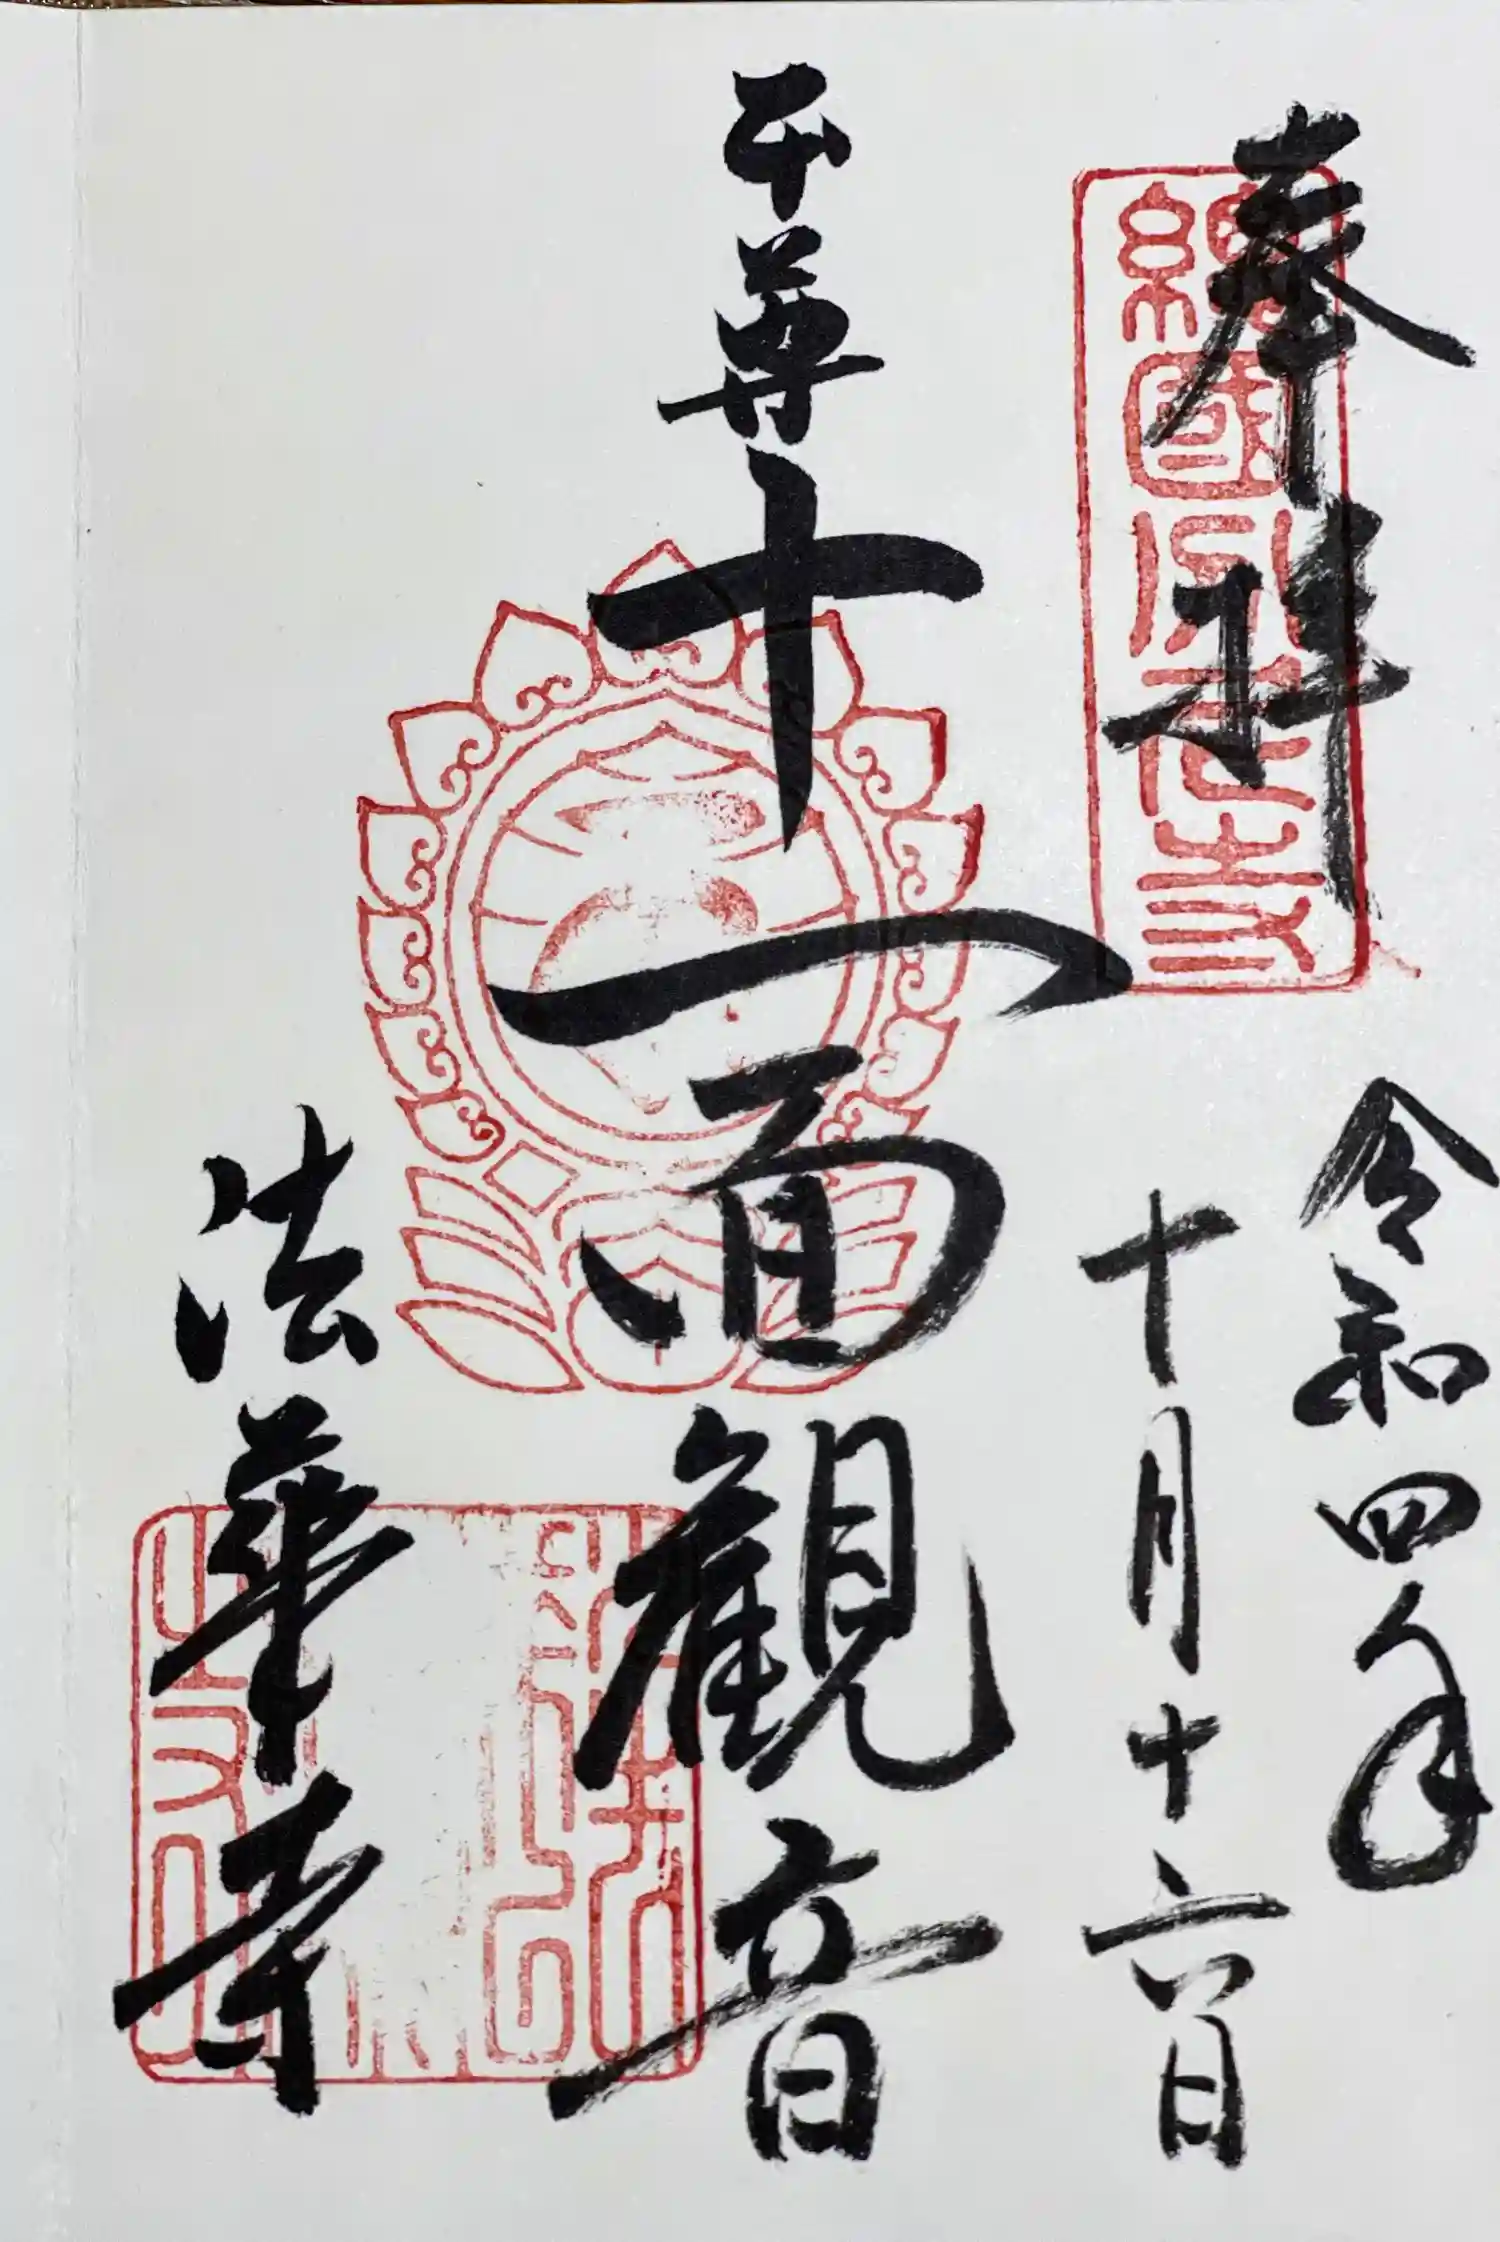 奉拝
總國分尼寺
令和四年
十月十六日
本尊
十一面観音
法華寺